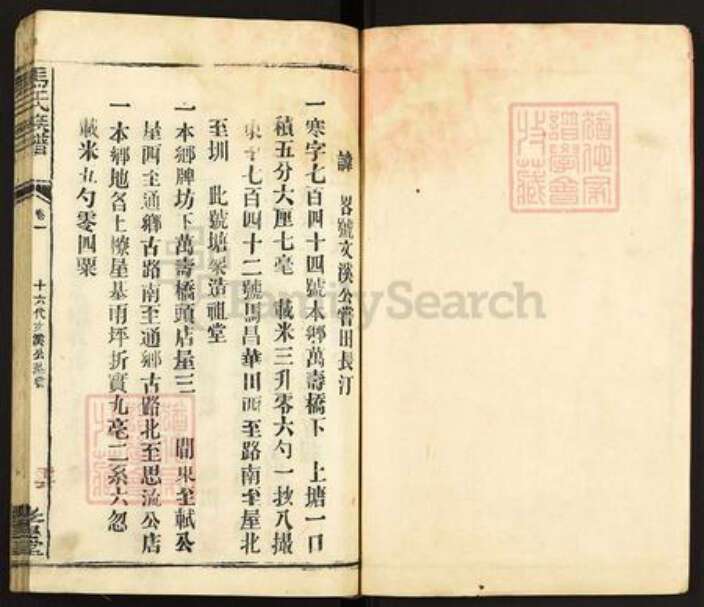 諱畧號文溪公嘗田長汀
一寒字七百四十四號本鄉萬壽橋下 上塘一口
積五分六厘七毫 載米三升零六勺一抄八撮
東七百四十二號馬昌華田西至路南至屋北
至圳 此號塘衆造祖堂
一本鄉牌坊下萬壽橋頭店屋三 間東至軾公
屋西至通鄉古路南至通鄉古路北至思流公店
一本鄉地名上屋基雨坪折實九亳二系六忽
載米五勺零四粟
馬氏族譜
卷一
十六代文溪公
FamilySearch